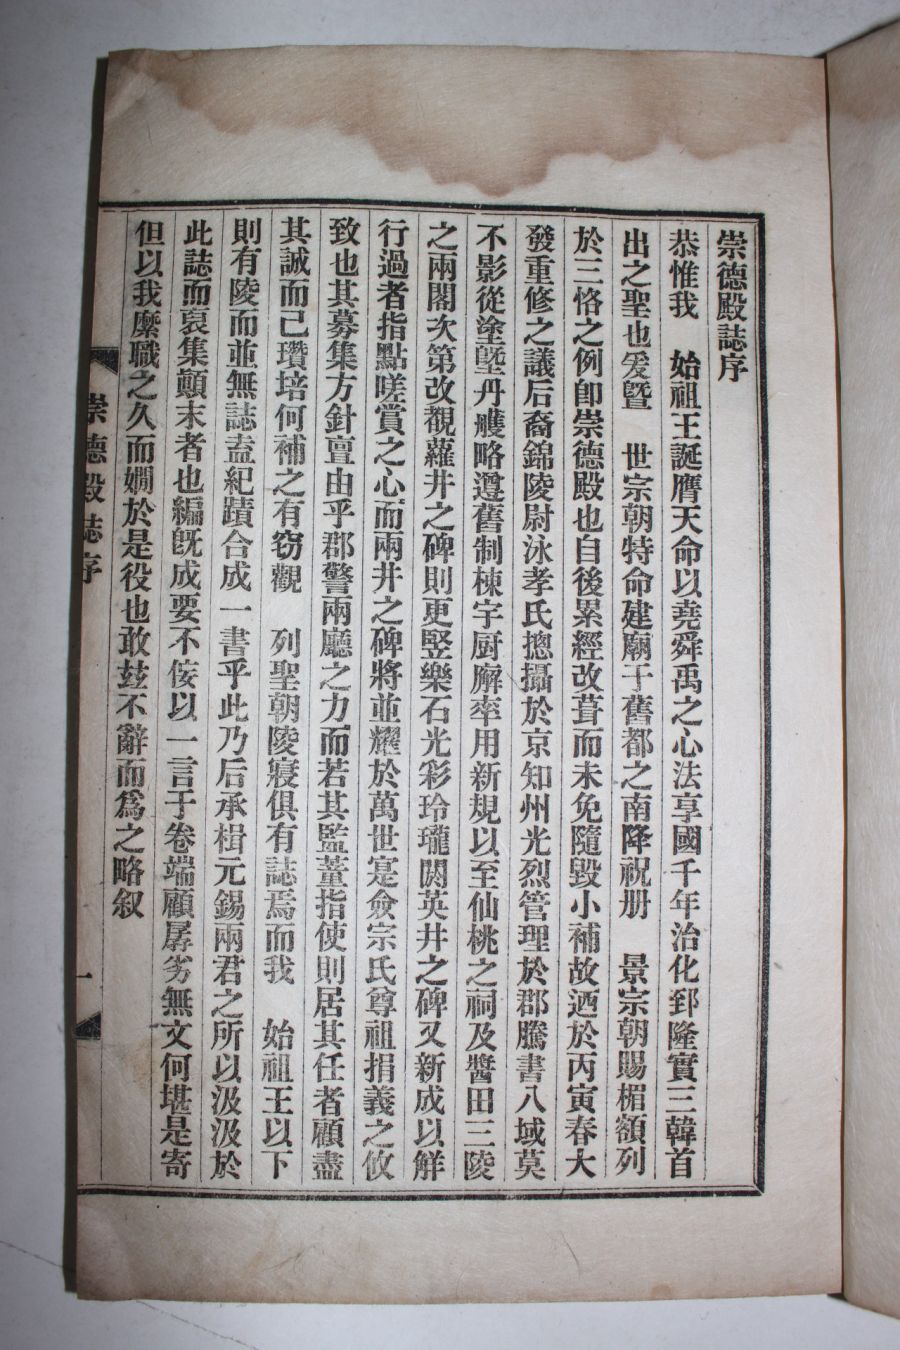 崇德殿誌序
恭惟我　始祖王誕膺天命以堯舜禹之心法享國千年治化郅隆實三韓首
出之聖也爰曁　世宗朝特命建廟于舊都之南降祝册　景宗朝賜楣額列
於三恪之例卽崇德殿也自後累經改葺而未免隨毀小補故迺於丙寅春大
發重修之議后裔錦陵尉泳孝氏摠攝於京知州光烈管理於郡騰書八域莫
不影從塗墍丹雘略遵舊制棟宇厨廨率用新規以至仙桃之祠及醬田三陵
之兩閣次第改觀蘿井之碑則更竪樂石光彩玲瓏閼英井之碑又新成以鮮
行過者指點嗟賞之心而兩井之碑將並耀於萬世寔僉宗氏尊祖捐義之攸
致也其募集方針亶由乎郡警兩廳之力而若其監董指使則居其任者顧盡
其誠而己瓚培何補之有窃觀　列聖朝陵寢俱有誌焉而我　始祖王以下
則有陵而並無誌盍紀蹟合成一書乎此乃后承楫元錫兩君之所以汲汲於
此誌而裒集顚末者也編旣成要不侫以一言于卷端顧孱劣無文何堪是寄
但以我縻職之久而嫺於是役也敢玆不辭而爲之略叙
崇德殿誌序
一